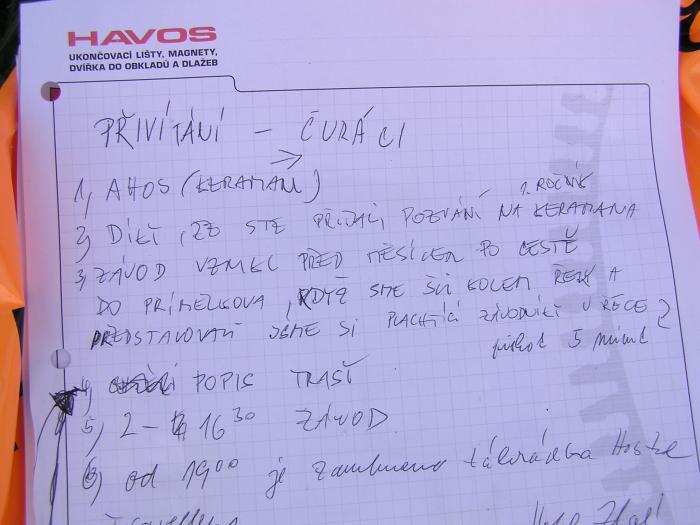 HAVOS
UKONČOVACÍ LIŠTY, MAGNETY,
DVÍŘKA DO OBKLADŮ A DLAŽEB
PŘIVÍTÁNÍ – ČURÁCI
1, AHOS (KERAMAN)
1. ROČNÍK
2, DÍKY, ŽE STE PŘIJALI POZVÁNÍ NA KERAMANA
3, ZÁVOD VZNIKL PŘED MĚSÍCEM PO CESTĚ
DO PRIMEŽKOVA, KDYŽ SME ŠLI KOLEM ŘEKY A
PŘEDSTAVOVALI JSME SI PLACHTÍCÍ ZÁVODNÍKY V ŘECE
5 minut
4, POPIS TRASY
5, 2 – 16 30 ZÁVOD
6, od 19 00 je zahrádka